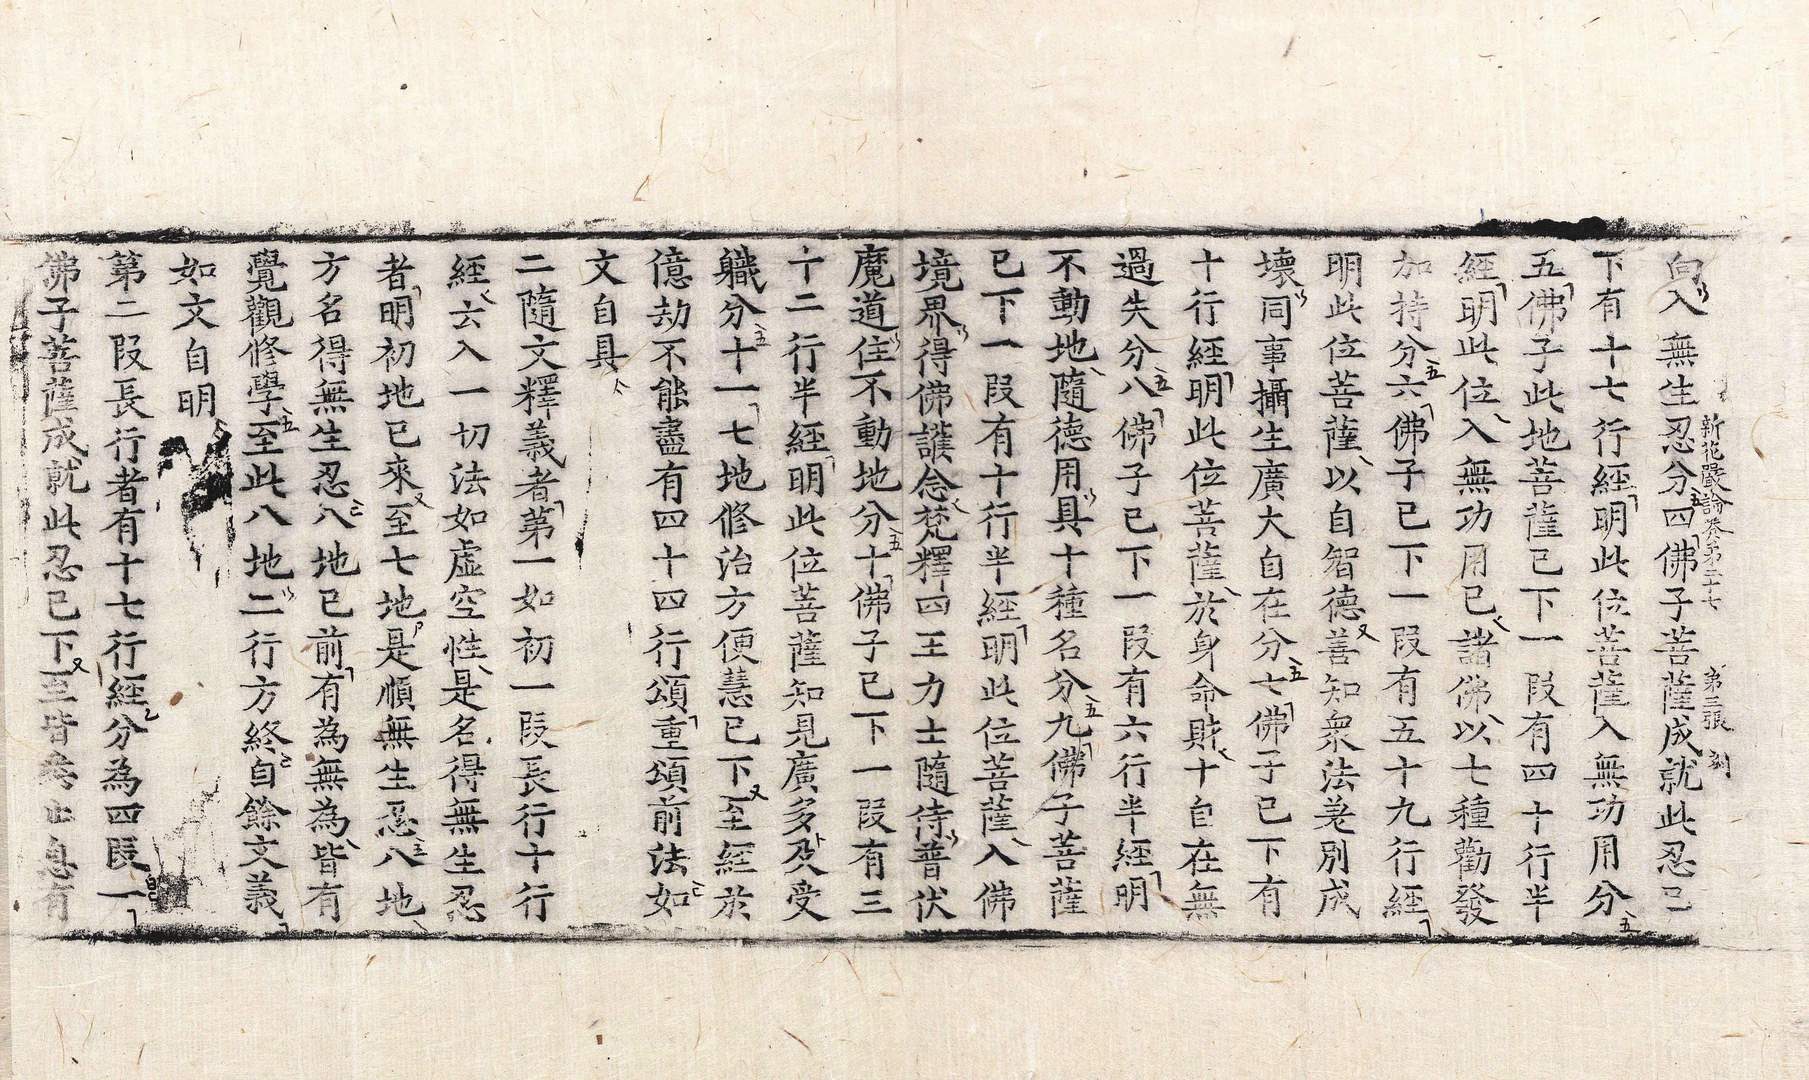 新花嚴論卷第二十七 第三張
向入無生忍分四佛子菩薩成就此忍已
下有十七行經明此位菩薩入無功用分
五佛子此地菩薩已下一段有四十行半
經明此位入無功用已諸佛以七種勸發
加持分六佛子已下一段有五十九行經
明此位菩薩以自智德善知衆法差別成
壞同事攝生廣大自在分七佛子已下有
十行經明此位菩薩於身命財十自在無
過失分八佛子已下一段有六行半經明
不動地隨德用具十種名分九佛子菩薩
已下一段有十行半經明此位菩薩入佛
境界得佛護念梵釋四王力士隨侍普伏
魔道住不動地分十佛子已下一段有三
十二行半經明此位菩薩知見廣多及受
軄分十一七地修治方便慧已下至經於
億劫不能盡有四十四行頌重頌前法如
文自具
二隨文釋義者第一如初一段長行十行
經云入一切法如虛空性是名得無生忍
者明初地已來至七地是順無生忍八地
方名得無生忍八地已前有為無為皆有
覺觀修學至此八地二行方終自餘文義
如文自明
第二段長行者有十七行經分為四段一
佛子菩薩成就此忍已下至皆悉止息有